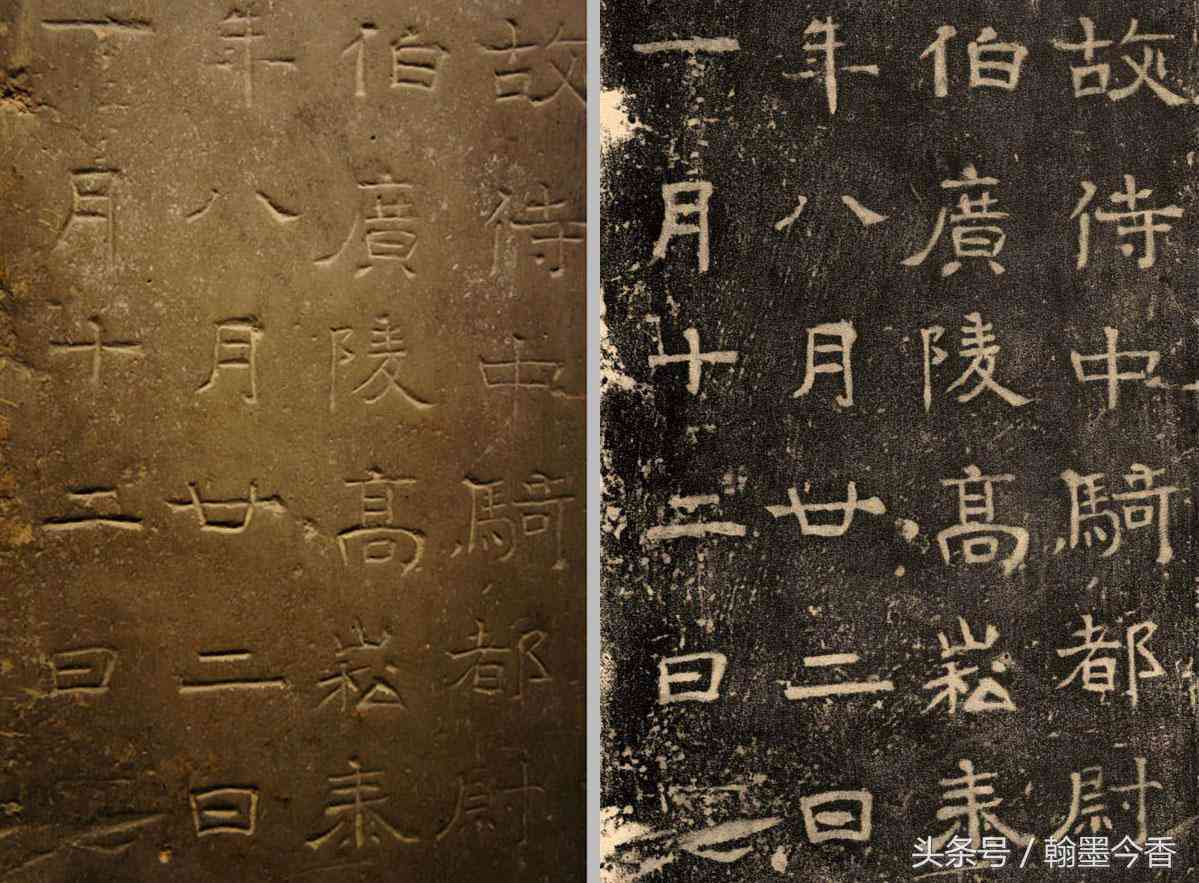 故侍中騎都尉
伯廣陵高崧泰
年八月廿二日
一月十二日
故侍中騎都尉
伯廣陵高崧泰
年八月廿二日
一月十二日
头条号 / 翰墨今香